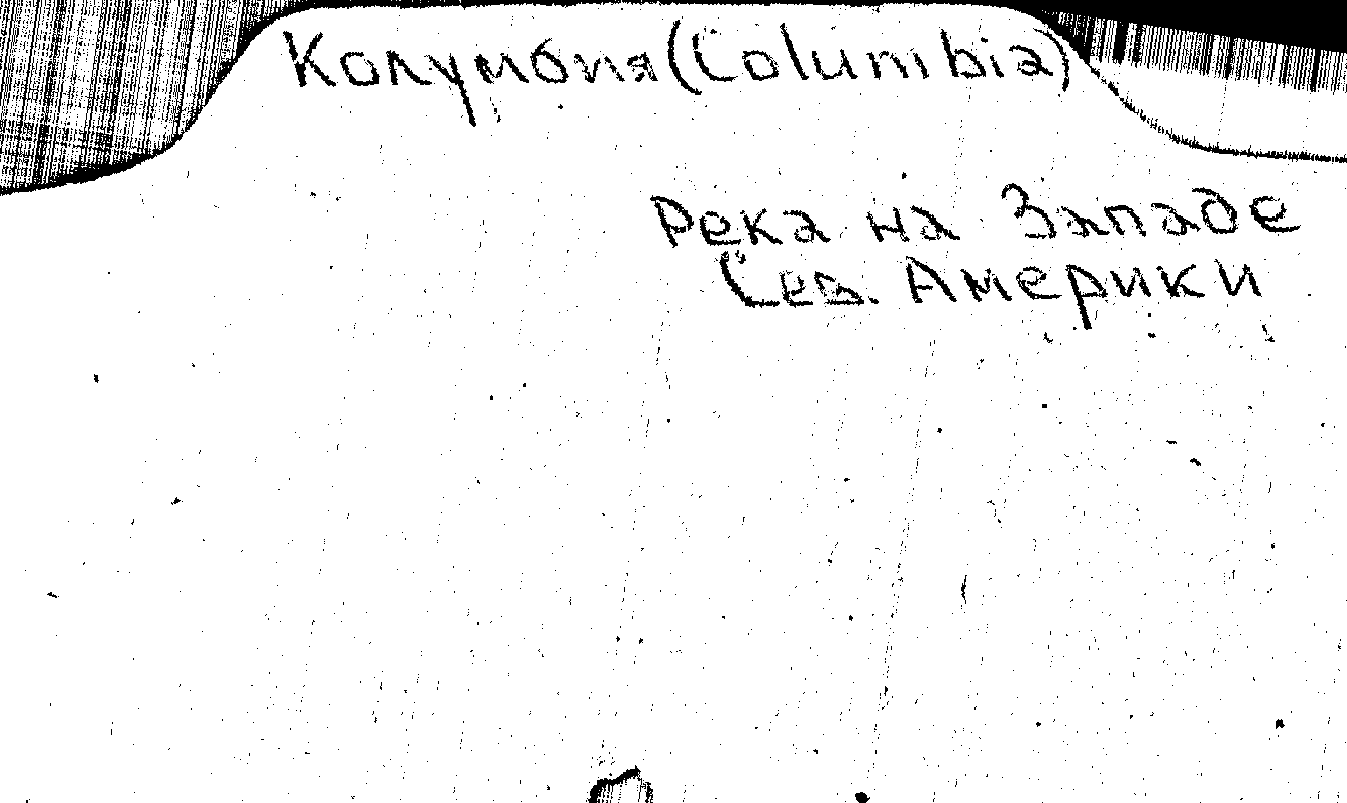 Колумбия (Columbia)
Река на Западе
Сев. Америки